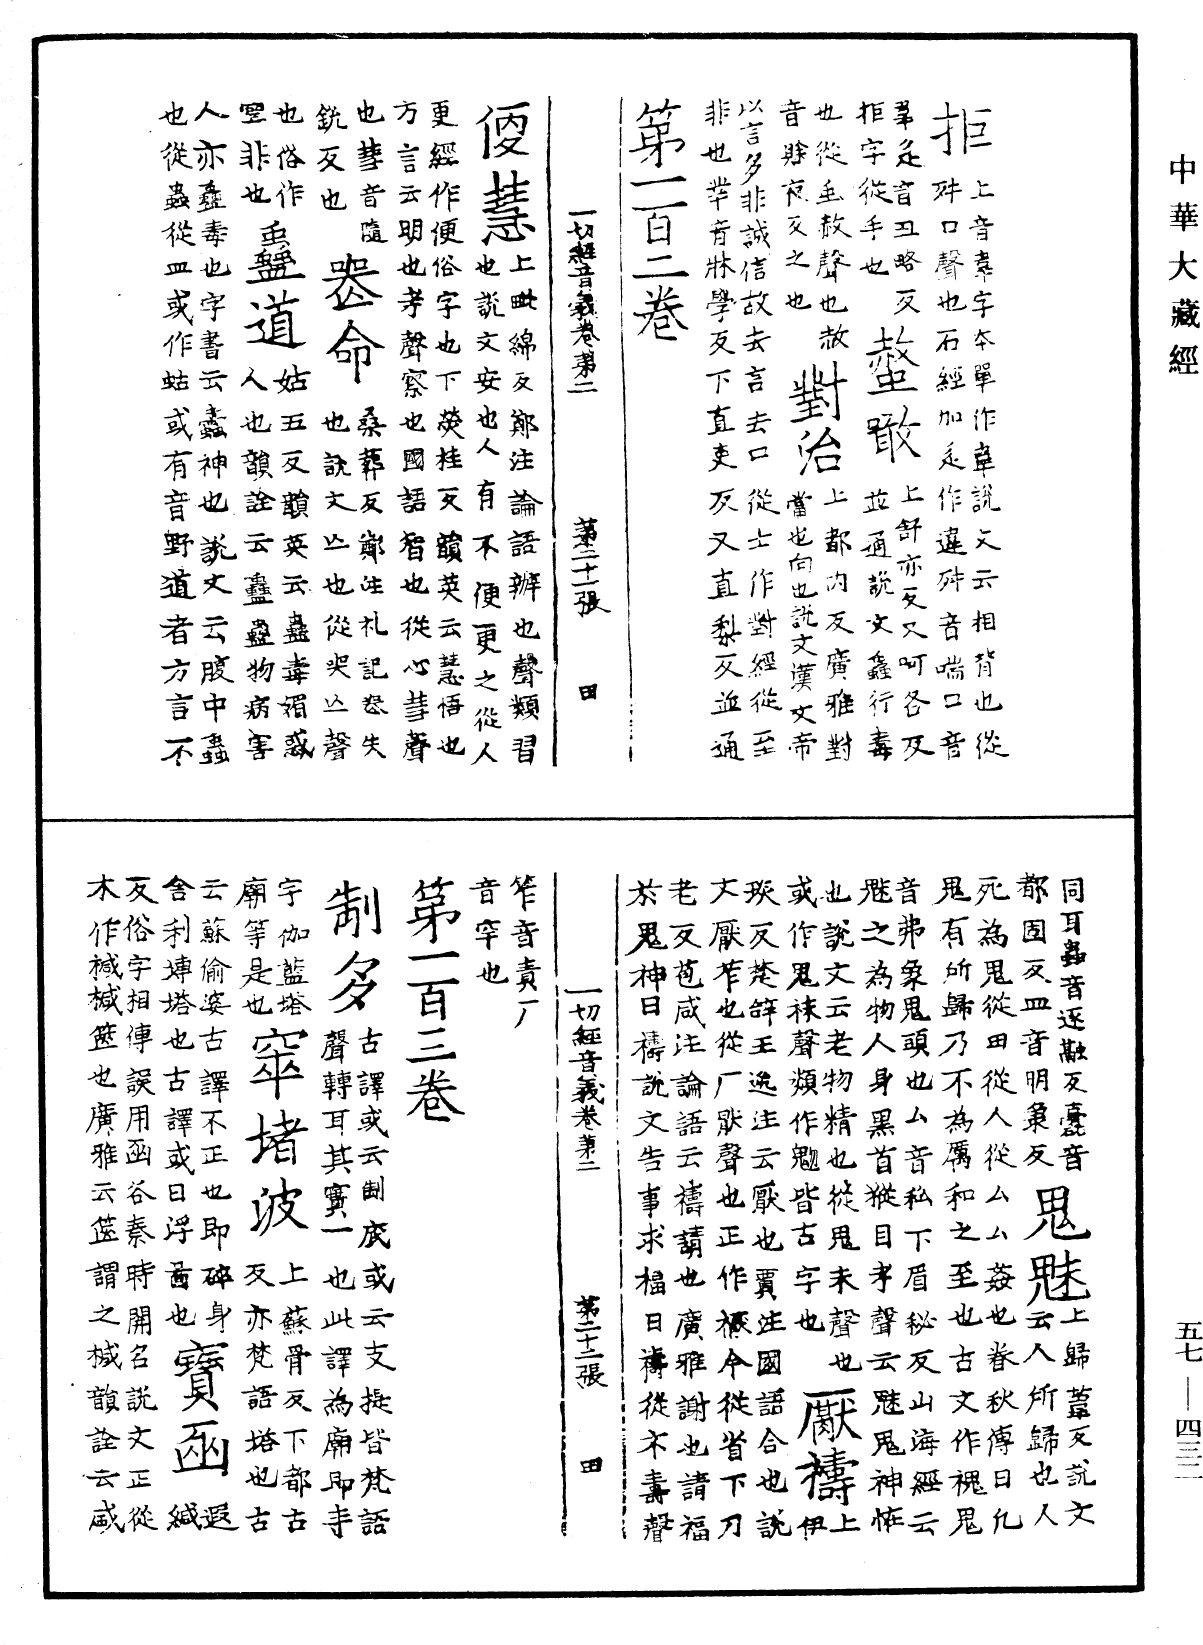 中華大藏經
拒 上音韋字本單作韋說文云相背也從
舛口聲也石經加辵作違舛音喘口音
韋辵音丑略反
拒字從手也
螫敢 上舒亦反又呵各反
並通說文螽行毒
也從虫赦聲也赦
音賒夜反之也
對治 上都內反廣雅對
當也向也說文漢文帝
以言多非誠信故去言去口從士作對經從至
非也丵音牀學反下直吏反又直梨反並通
第一百二卷
一切經音義卷第二 第二十一張 田
㥠慧 上毗綿反鄭注論語辨也聲類習
也說文安也人有不便更之從人
更經作便俗字也下熒桂反韻英云慧悟也
方言云明也考聲察也國語智也從心彗聲
也彗音隨
銳反也
喪命 桑葬反鄭注礼記喪失
也說文亾也從哭亾聲
也俗作
㗊非也
蠱道 姑五反韻英云蠱毒媚惑
人也韻詮云蠱蠱物病害
人亦蠱毒也字書云蠱神也說文云腹中蟲
也從蟲從皿或作蛄或有音野道者方言不
同耳蟲音逐融反蠹音
都固反皿音明秉反
鬼魅 上歸葦反說文
云人所歸也人
死為鬼從田從人從厶厶姦也春秋傳曰凡
鬼有所歸乃不為厲和之至也古文作䰟鬼
音弗象鬼頭也厶音私下眉秘反山海經云
魅之為物人身黑首從目考聲云魅鬼神怪
也說文云老物精也從鬼未聲也
或作鬼袜聲類作魑皆古字也
厭禱 上
伊
琰反楚辭王逸注云厭也賈注國語合也說
文厭苲也從厂猒聲也正作橛今從省下刀
老反苞咸注論語云禱請也廣雅謝也請福
於鬼神曰禱說文告事求福曰禱從示壽聲
一切經音義卷第二 第二十二張 田
笮音責厂
音罕也
第一百三卷
制多 古譯或云制底或云支提皆梵語
聲轉耳其實一也此譯為廟即寺
字伽藍塔
廟等是也
窣堵波 上蘇骨反下都古
反亦梵語塔也古
云蘇偷婆古譯不正也即碎身
舍利塼塔也古譯或曰浮啚也
寶函 遐
緘
反俗字相傳誤用函谷秦時開名說文正從
木作椷椷篋也廣雅云篋謂之椷韻詮云咸
五七—四三二